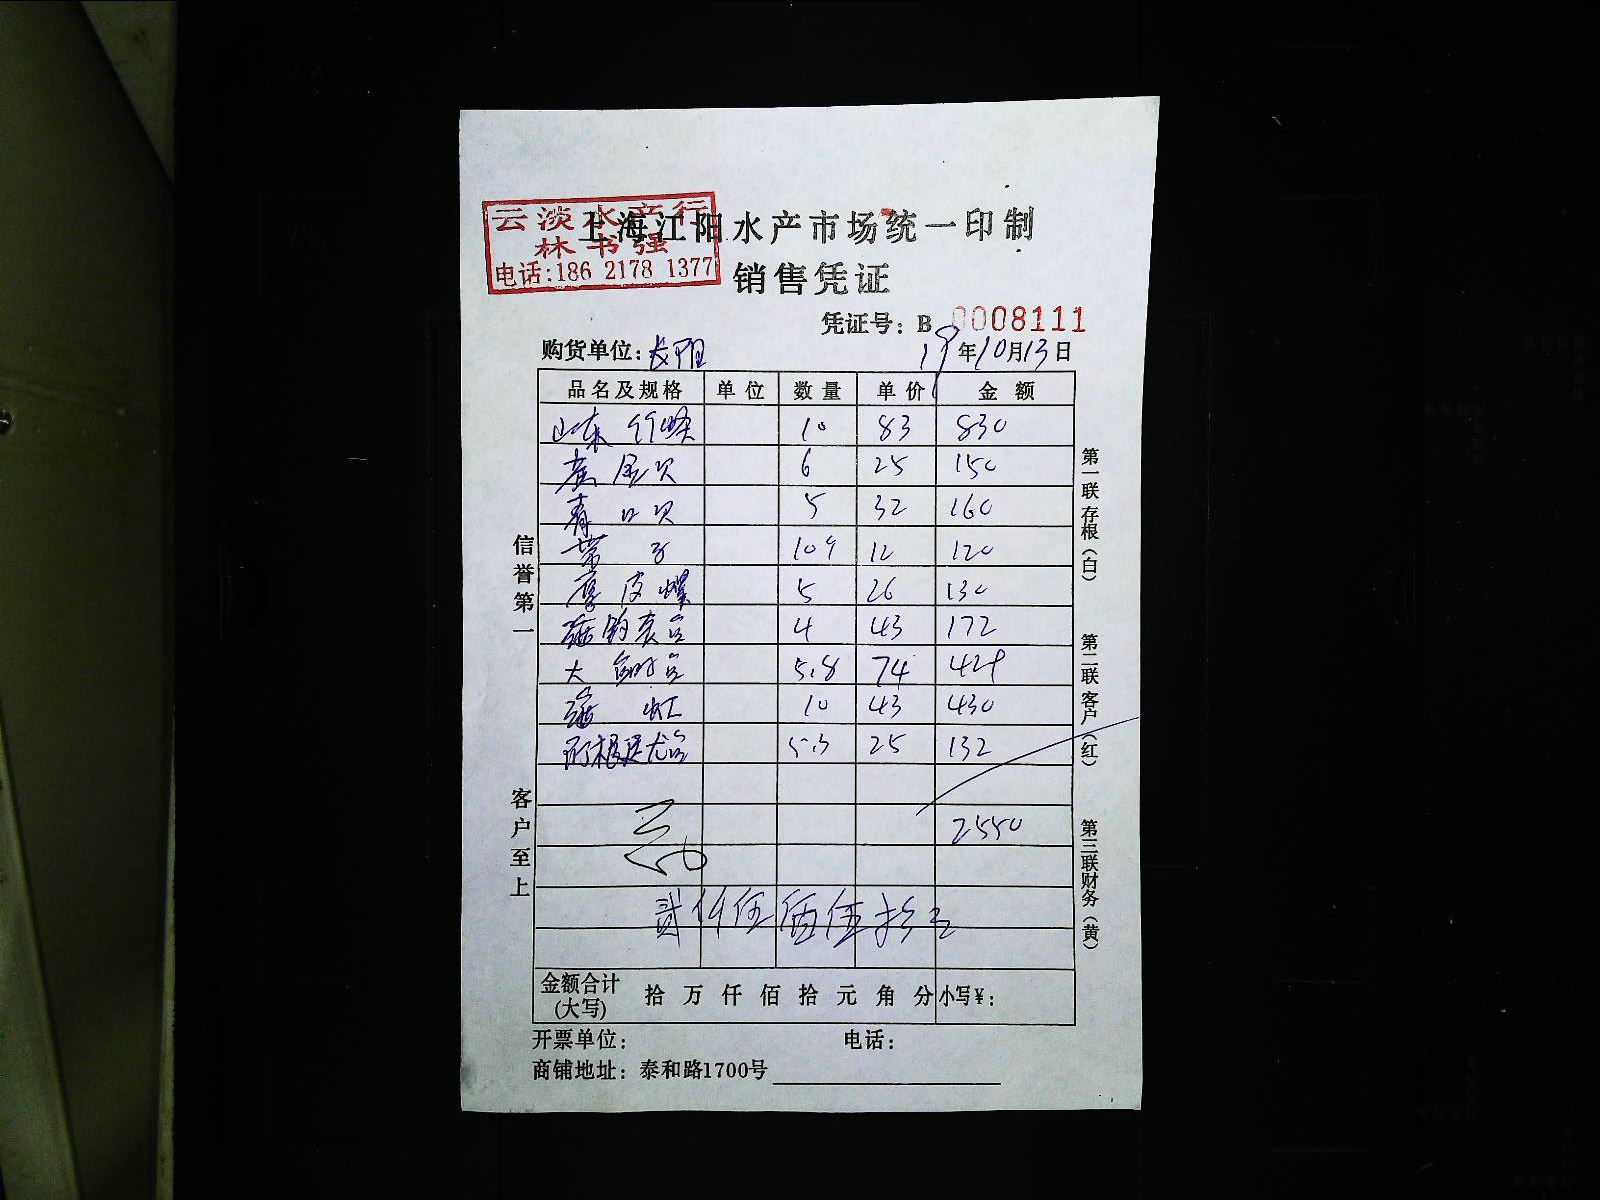 云淡水产行
林书强
电话:186 2178 1377
上海江阳水产市场统一印制
销售凭证
凭证号: B 0008111
购货单位: 19年10月13日
品名及规格 单位 数量 单价 金额
山东 10 83 830
黄金贝 6 25 150
青口贝 5 32 160
带子 10 12 120
皮螺 5 26 130
4 43 172
大 5.8 74 429
虹 10 43 430
5.3 25 132
2550
贰仟伍佰伍拾元
金额合计(大写) 拾 万 仟 佰 拾 元 角 分 小写¥:
开票单位: 电话:
商铺地址: 泰和路1700号
信誉第一
客户至上
第一联 存根(白)
第二联 客户(红)
第三联 财务(黄)